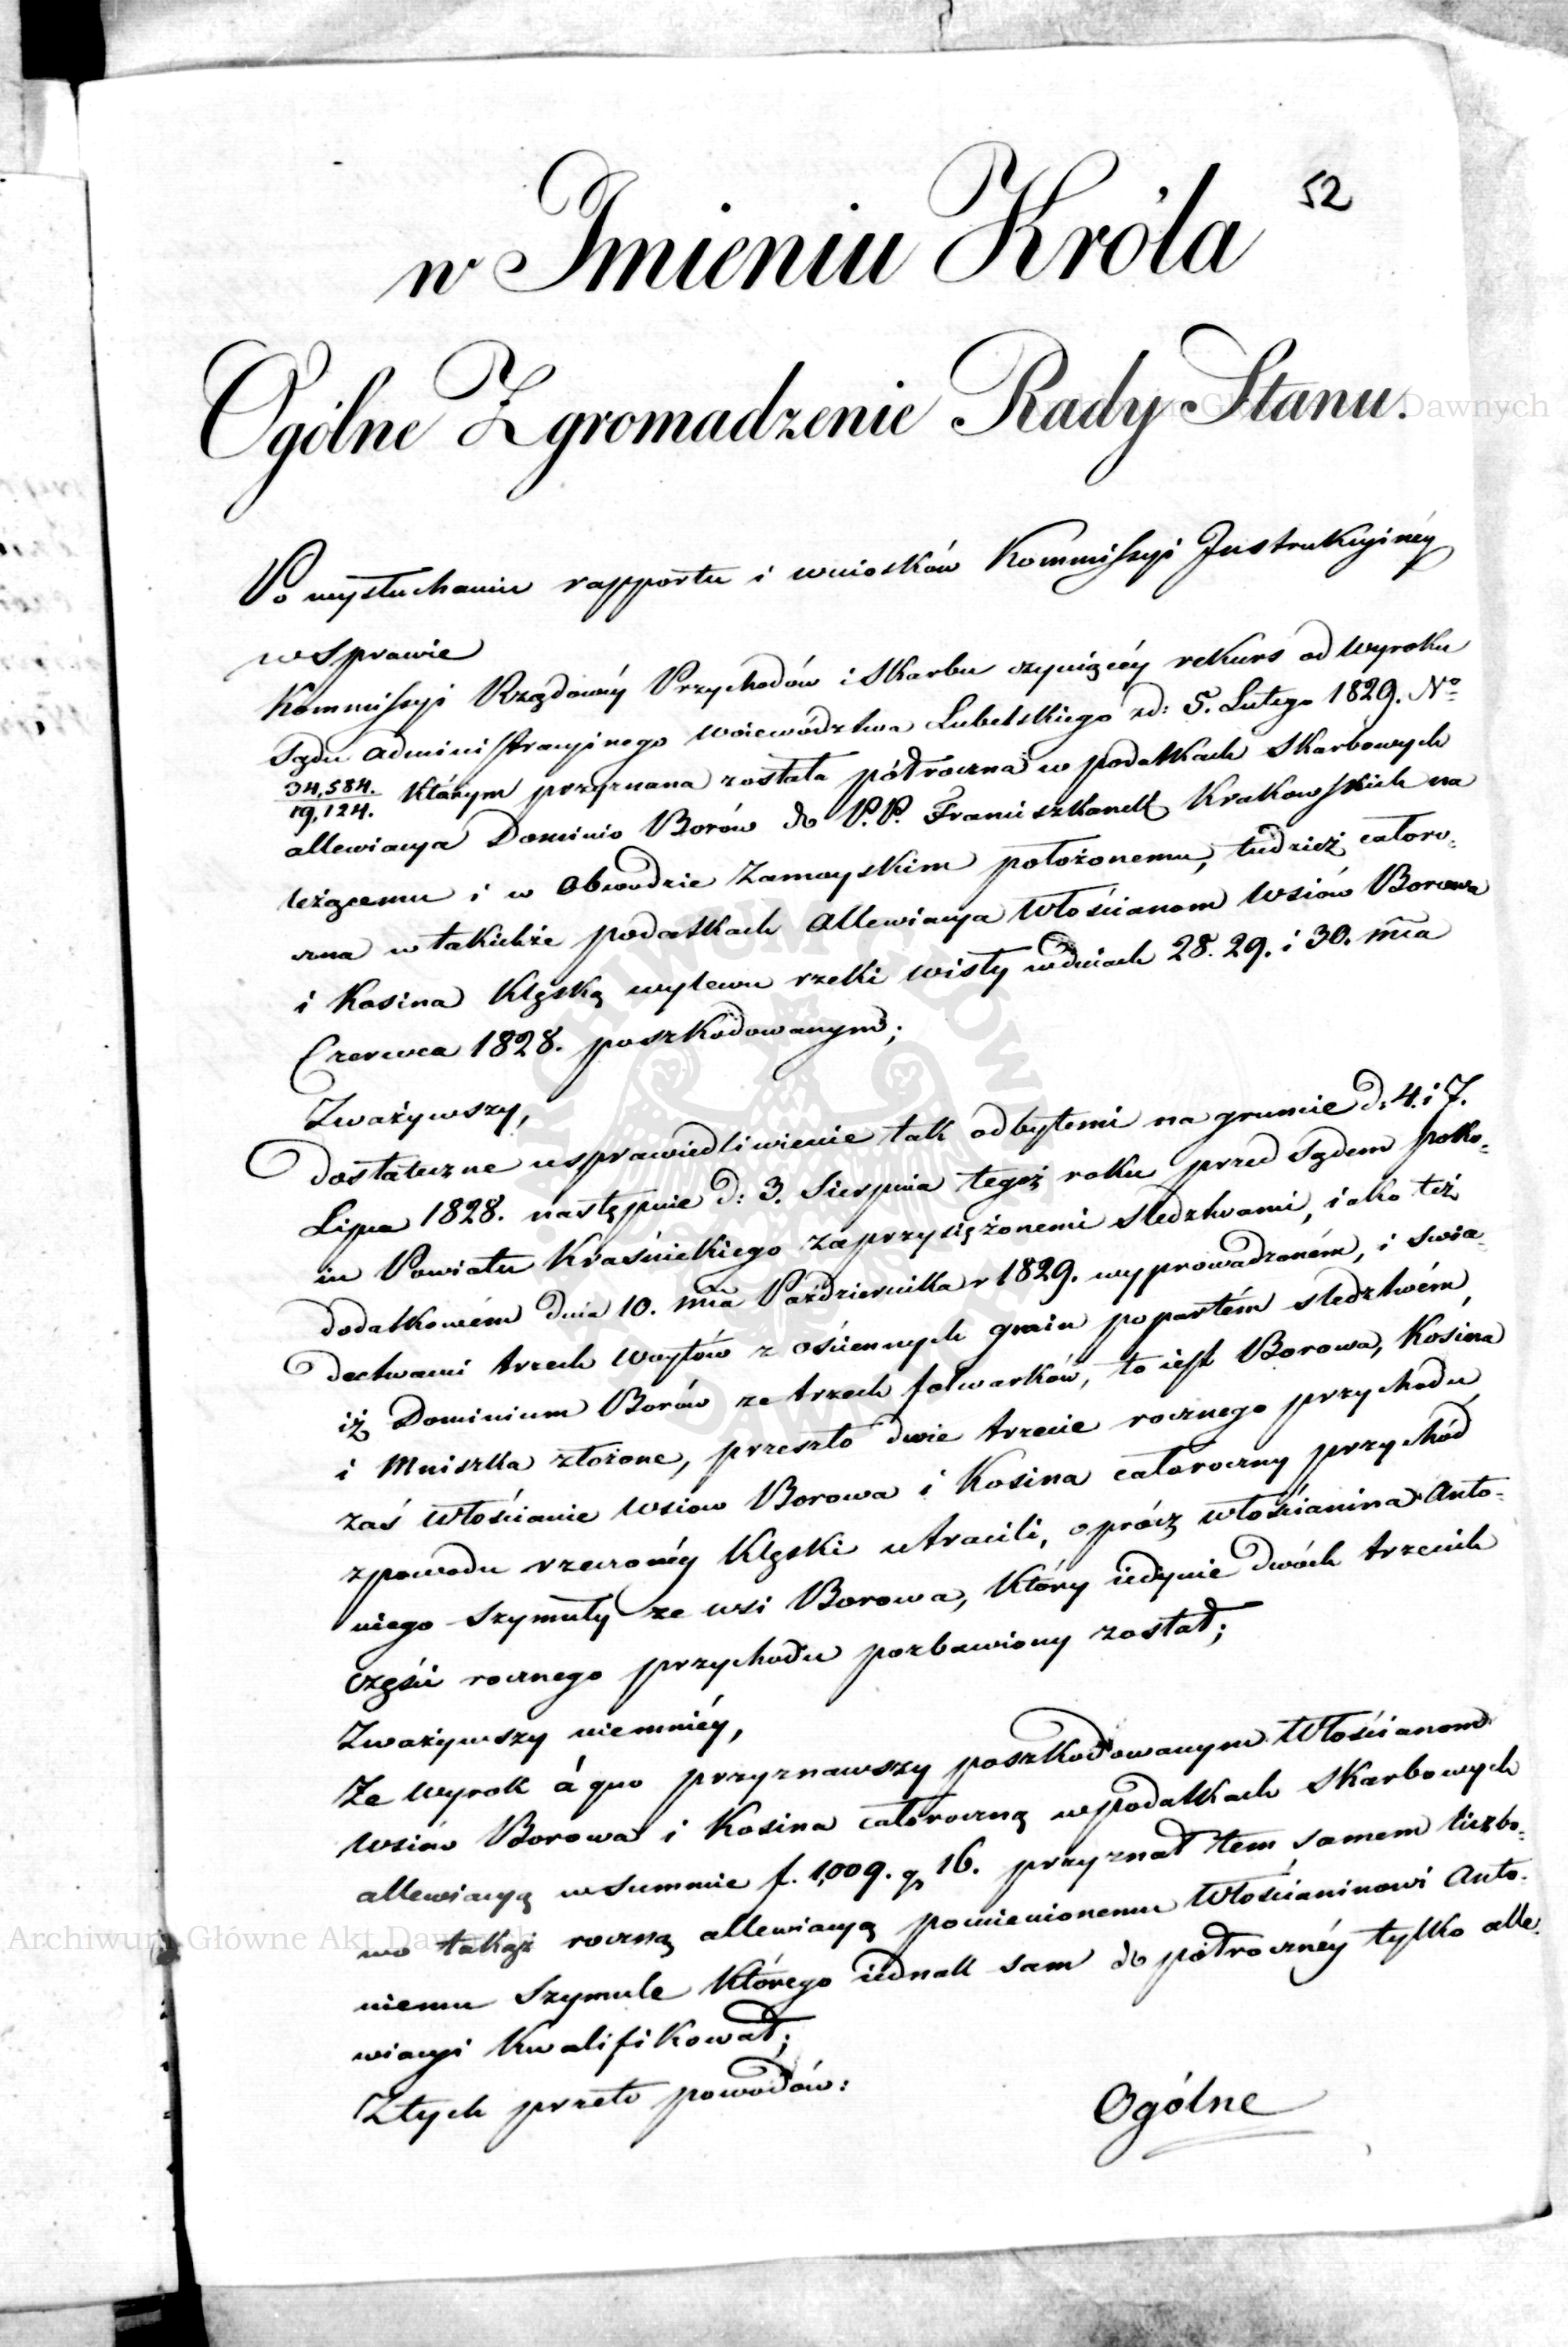 52
w Imieniu Króla
Ogólne Zgromadzenie Rady Stanu.
Po wysłuchaniu rapportu i wniosków Kommissyi Instrukcyinéy
w Sprawie
Kommissyi Rządowéy Przychodów i Skarbu czyniącéy rekurs od Wyroku
Sądu Administracyinego Woiewództwa Lubelskiego zd: 5. Lutego 1829. No
34,584.
19,124. którym przyznana została półroczna w podatkach Skarbowych
allewiacya Dominio Borów do P.P. Franciszkanek Krakowskich na
leżącemu i w Obwodzie Zamoyskim położonemu, tudzież całoro-
czna w takichże podatkach Allewiacya Włościanom Wsiów Borowa
i Kosina klęską wylewu rzeki Wisły w dniach 28. 29. i 30. mca
Czerwca 1828. poszkodowanym;
Zważywszy,
Dostateczne usprawiedliwienie tak odbytemi na gruncie d: 4. i 7.
Lipca 1828. następnie d: 3. Sierpnia tegoż roku przed Sądem poko-
iu Powiatu Kraśnickiego zaprzysiężonemi śledztwami, iako też
dodatkowém dnia 10. mca Października r 1829. wyprowadzoném, i świa-
dectwami trzech Woytów z ościennych gmin popartém śledztwém,
iż Dominium Borów ze trzech folwarków, to iest Borowa, Kosina
i Mniszka złożone, przeszło dwie trzecie rocznego przychodu,
zaś Włościanie Wsiow Borowa i Kosina całoroczny przychód
z powodu rzeczonéy klęski utracili, oprócz włościanina Anto-
niego Szymuły ze wsi Borowa, który iedynie dwóch trzecich
części rocznego przychodu pozbawiony został;
Zważywszy niemniéy,
Ze wyrok á quo przyznawszy poszkodowanym Włościanom
Wsiów Borowa i Kosina całoroczną w podatkach Skarbowych
allewiacyą w Summie f. 1,009. gr 16. przyznał tem samem liczbo-
wo takąż roczną allewiacyą pomienionemu Włościaninowi Anto-
niemu Szymule którego iednak sam do półrocznéy tylko alle-
wiacyi kwalifikował;
Z tych przeto powodów:
Ogólne
Archiwum Główne Akt Dawnych